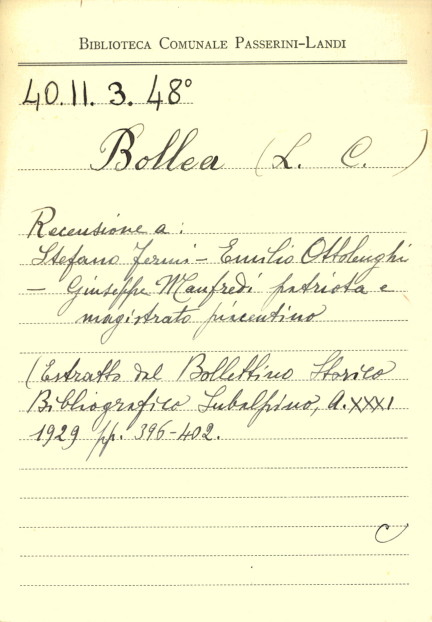 BIBLIOTECA COMUNALE PASSERINI-LANDI
40.11.3.48°
Bollea (L. C.)
Recensione a:
Stefano Fermi - Emilio Ottolenghi
- Giuseppe Manfredi patriota e
magistrato piacentino
(Estratto dal Bollettino Storico
Bibliografico Subalpino, A. XXXI
1929 pp. 396-402.
C